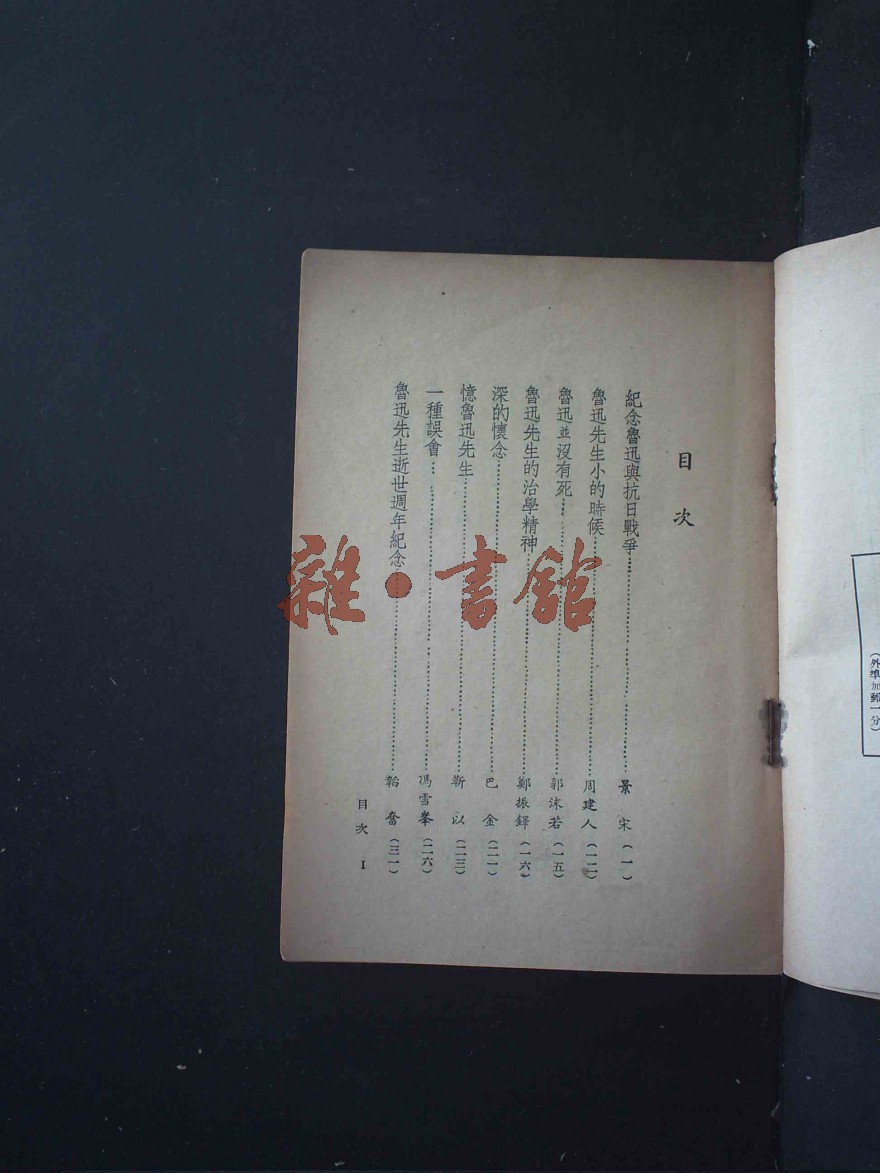 (外埠加郵一分)
目次
紀念魯迅與抗日戰爭……景宋(一)
魯迅先生小的時候……周建人(一二)
魯迅並沒有死……郭沫若(一五)
魯迅先生的治學精神……鄭振鐸(一六)
深的懷念……巴金(二一)
憶魯迅先生……靳以(二三)
一種誤會……馮雪峯(二六)
魯迅先生逝世週年紀念……韜奮(三一)
目次 I
雜·書館